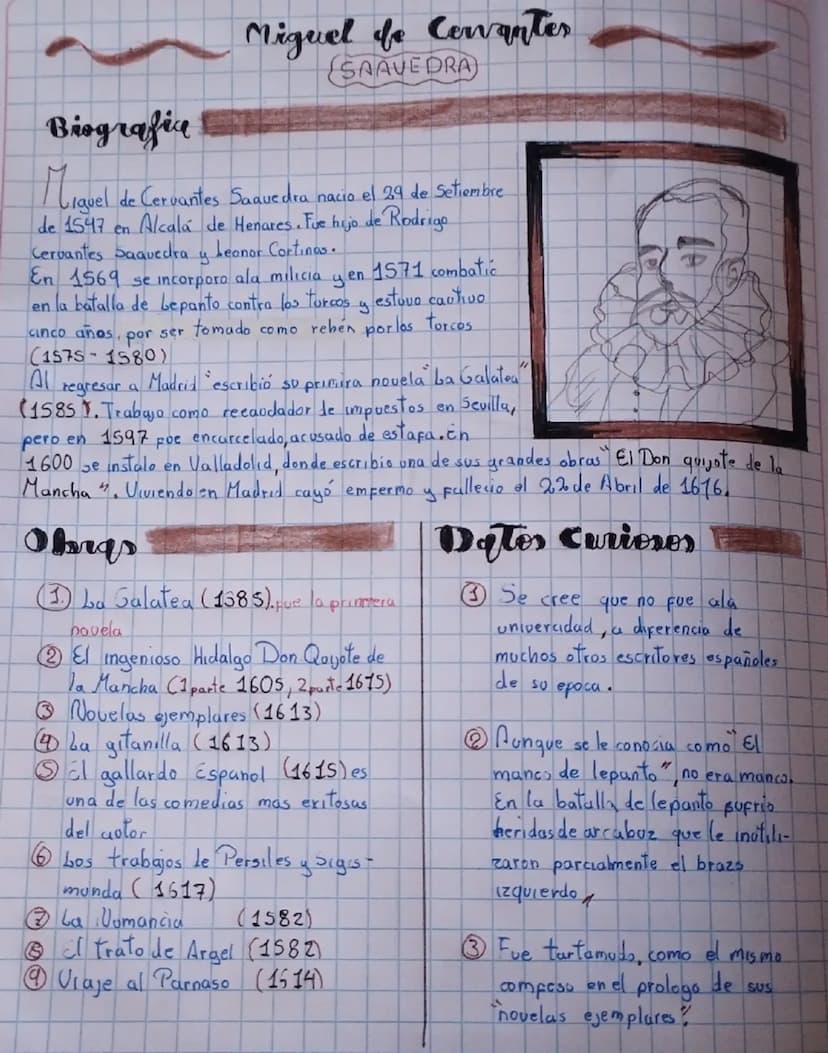 Miguel de Cervantes
(SAAVEDRA)
Biografia
Miguel de Cervantes Saavedra nacio el 29 de Setiembre
de 1547 en Alcalá de Henares. Fue hijo de Rodrigo
Cervantes Saavedra y Leonor Cortinas.
En 1569 se incorporo ala milicia y en 1571 combatió
en la batalla de Lepanto contra los turcos y estuvo cautivo
cinco años, por ser tomado como rehén por los torcos
(1575 - 1580)
Al regresar a Madrid "escribió su primira novela "La Galatea"
(1585). Trabajo como recaodador de impuestos en Sevilla,
pero en 1597 foe encarcelado, acusado de estafa. En
1600 se instalo en Valladolid, donde escribio una de sus grandes obras "El Don quijote de la
Mancha". Viviendo en Madrid cayó empermo y fallecio el 22 de Abril de 1616.
Obras
① La Galatea (1585). fue la primera
novela
② El ingenioso Hidalgo Don Quijote de
la Mancha (1 parte 1605, 2 parte 1615)
③ Novelas ejemplares (1613)
④ La gitanilla (1613)
⑤ El gallardo Espanol (1615) es
una de las comedias mas exitosas
del autor
⑥ Los trabajos de Persiles y Sigis-
munda (1617)
⑦ La Numancia (1582)
⑧ El trato de Argel (1582)
⑨ Viaje al Parnaso (1614)
Datos Curiosos
① Se cree que no fue ala
univercidad, a diferencia de
muchos otros escritores españoles
de su epoca.
② Aunque se le conocia como "El
manco de lepanto", no era manco.
En la batalla de lepanto sufrio
heridas de arcabuz que le inutili-
zaron parcialmente el brazo
izquierdo,
③ Fue tartamudo, como el mismo
compeso en el prologo de sus
"novelas ejemplares".